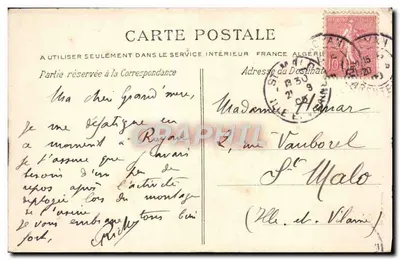 CARTE POSTALE
A UTILISER SEULEMENT DANS LE SERVICE INTÉRIEUR FRANCE ALGÉRIE
Partie réservée à la Correspondance
Adresse du Destina
Ma chère grand'mère,
je me défatigue en
ce moment à Royan
Je t'assure que j'avais
besoin d'un peu de
repos après l'activité
déployée lors du montage
de l'usine.
Je vous embrasse tous bien
fort,
Madame
2, rue Vauborel
St Malo
(Ille-et-Vilaine)